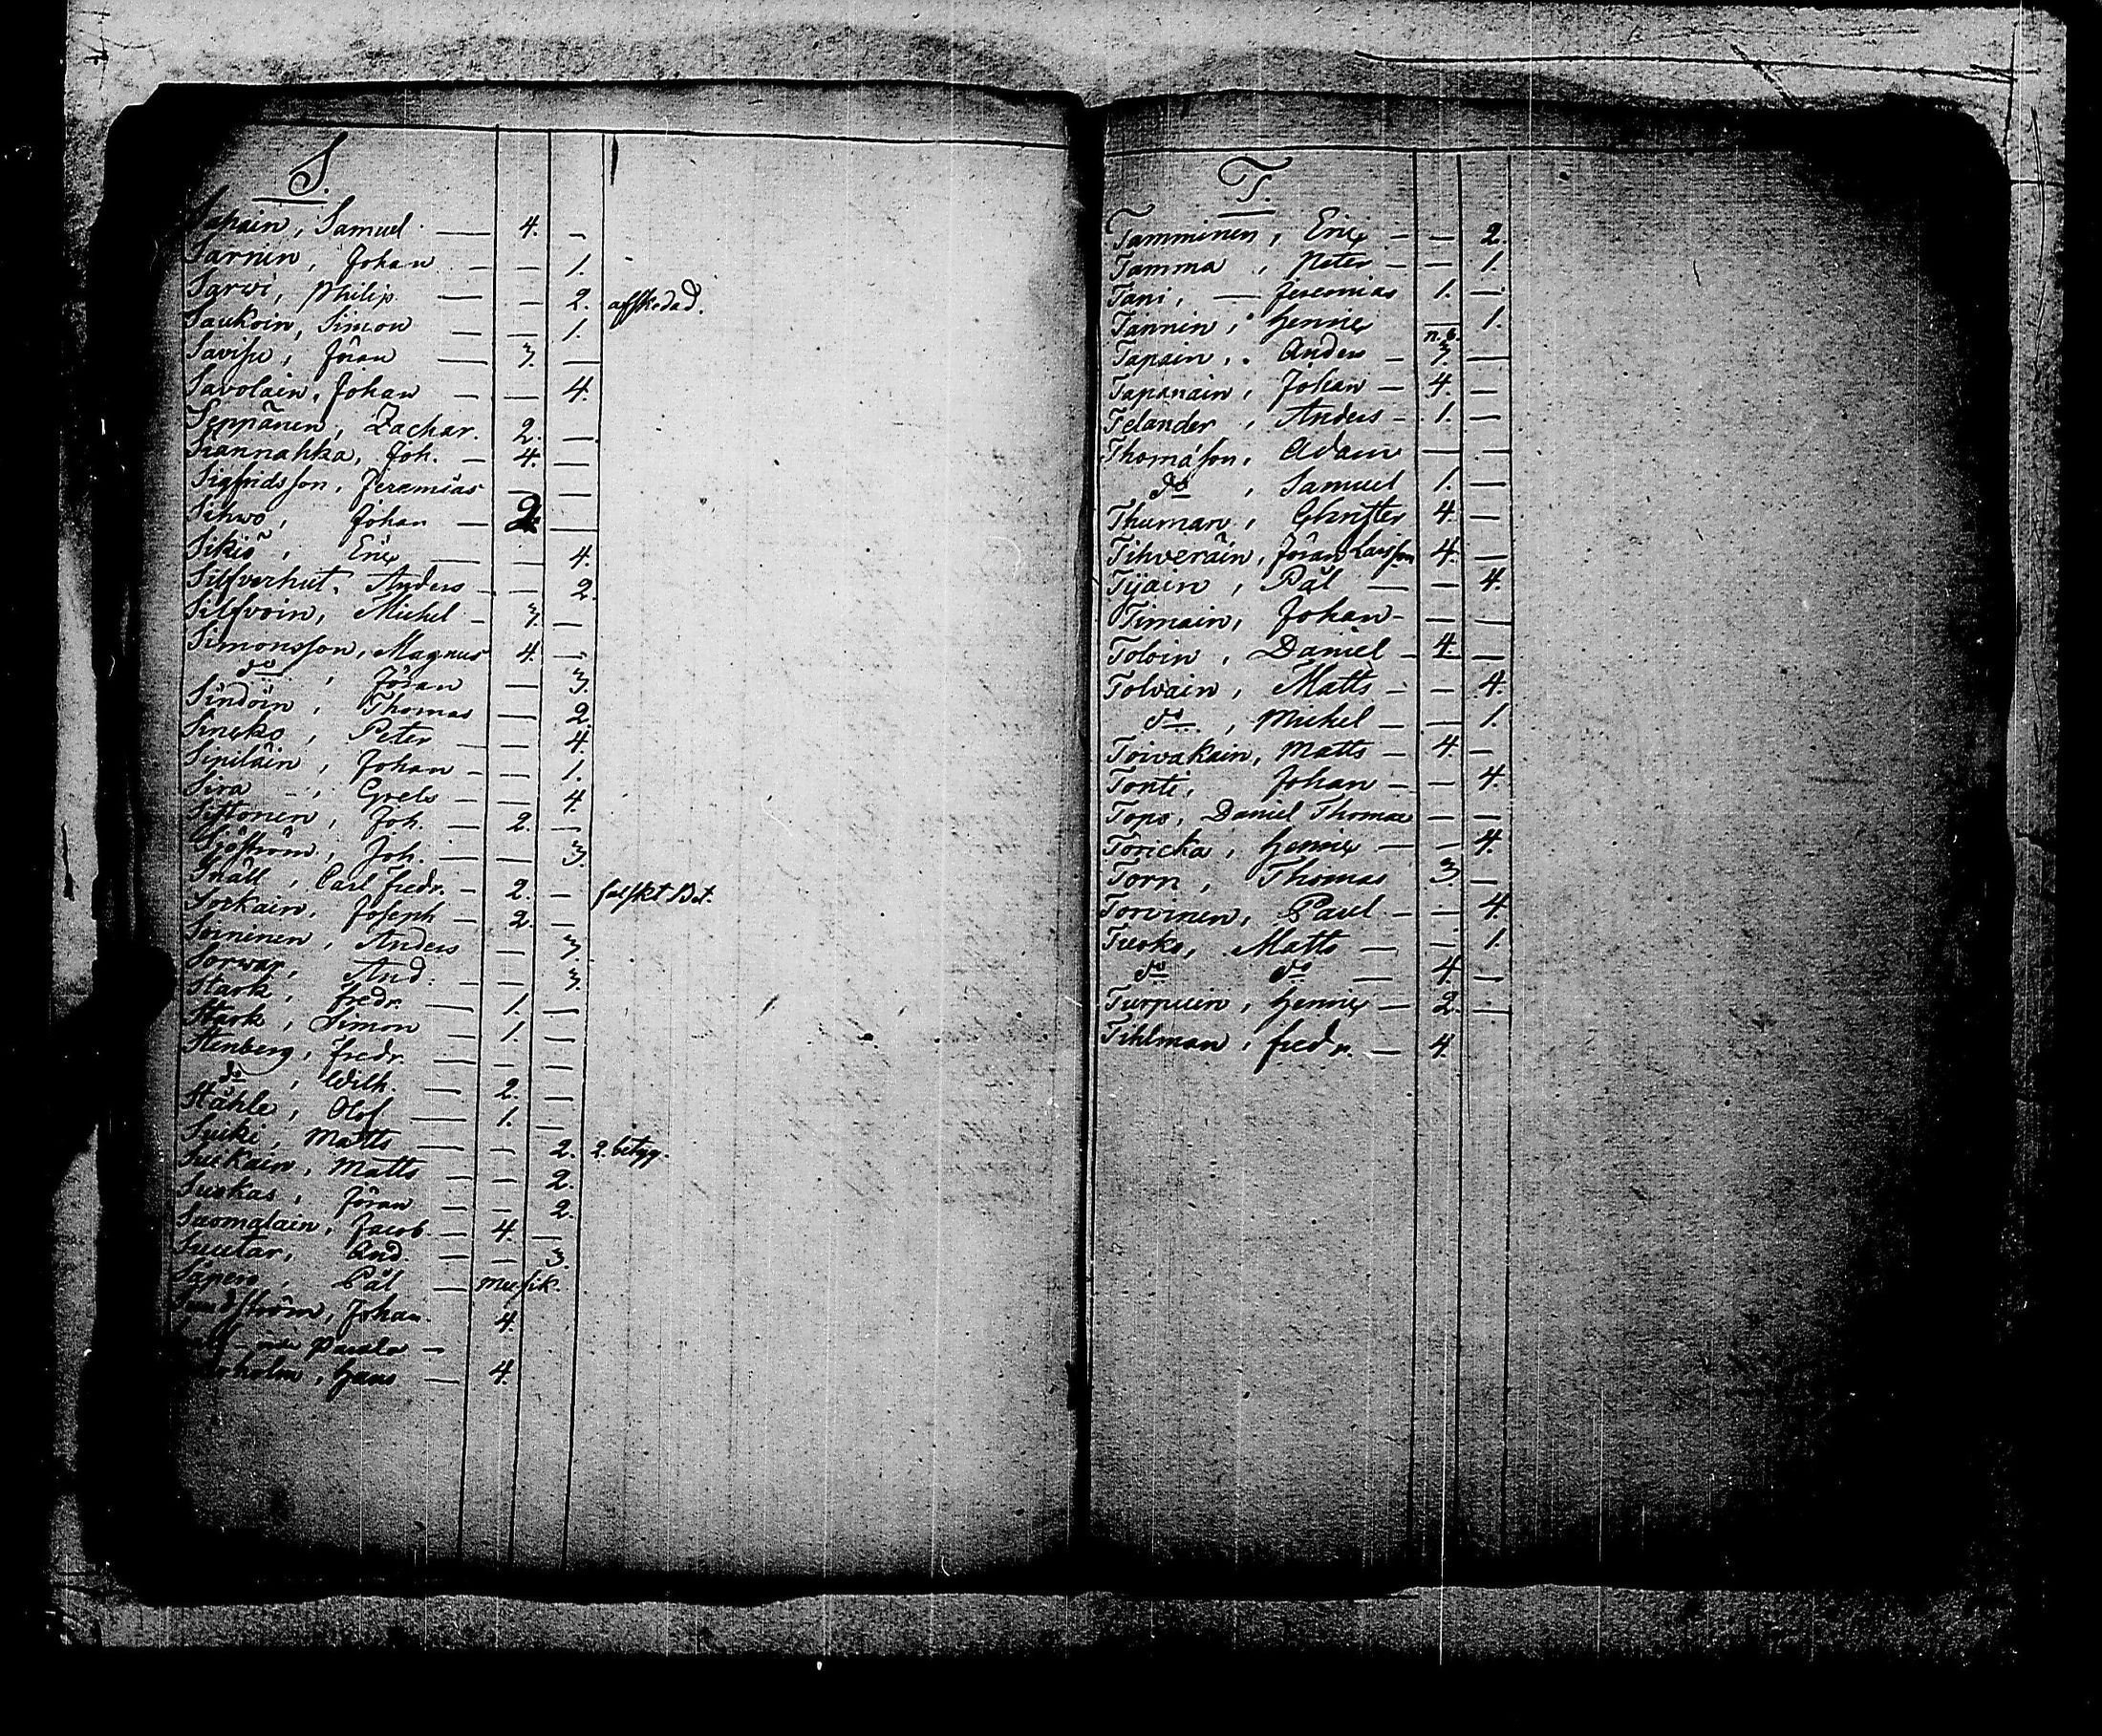 S.
Sapain, Samuel — 4. —
Sarnin, Johan — — 1.
Sarwi, Philip — — 2. affskedad.
Saukoin, Simon — — 1.
Savisu, Jöran — 3. —
Savolain, Johan — — 4.
Seppänen, Zachar. 2. —
Siannahka, Joh. — 4. —
Sigfridsson, Jeremias — —
Sihwo, Johan — 2. —
Sikiö, Eric — — 4.
Silfverhut, Anders — — 2.
Silfvoin, Michel — 3. —
Simonsson, Magnus 4. —
do, Jöran — 3.
Sindöin, Thomas — 2.
Sineko, Peter — — 4.
Sipiläin, Johan — — 1.
Sira —, Grels — — 4.
Sittonen, Joh. — 2. —
Sjöström, Joh. — — 3.
Snäll, Carl Fredr. — 2. — falskt Bet.
Sorkain, Joseph — 2. —
Soininen, Anders — 3.
Sorwar, And. — — 3.
Stark, fredr. — 1. —
Stark, Simon — 1. —
Stenberg, fredr. — — —
do, Wilh. — 2. —
Ståhle, Olof — 1. —
Suuki, Matts — — 2. 2. betyg.
Suikain, Matts — — 2.
Suokas, Jöran — — 2.
Suomalain, Jacob — 4. —
Suutar, And. — — 3.
Säpero, Pål — musik.
Sundström, Johan. 4.
—
Hans — 4.
T.
Tamminen, Eric — — 2.
Tamma, Peter — — 1.
Tani, — Jeremias 1. —
Tannin, Henric — 1.
Tapain, Anders — n. 6. 3. —
Tapanain, Johan — 4. —
Telander, Anders — 1. —
Thomasson, Adam — —
do, Samuel 1. —
Thuman, Christer 4. —
Tihveräin, Jöran Larsson 4. —
Tijain, Pål — — 4.
Timain, Johan — — —
Toloin, Daniel — 4. —
Tolvain, Matts — — 4.
do, Michel — — 1.
Toivakain, Matts — 4. —
Tonti, Johan — — 4.
Topo, Daniel Thomae — —
Toricka, Henric — — 4.
Torn, Thomas 3. —
Torvinen, Paul — — 4.
Tuoko, Matts — — 1.
do do — 4. —
Turpuin, Henric — 2. —
Tihlman, fredr. — 4.